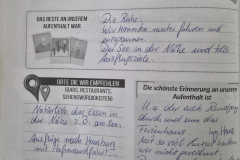 DAS BESTE AN UNSEREM
AUFENTHALT WAR
Die Ruhe.
Wir konnten runter fahren und
entspannen.
Der See in der Nähe und tolle
Ausflugsziele.
ORTE DIE WIR EMPFEHLEN
(BARS, RESTAURANTS,
SEHENSWÜRDIGKEITEN)
Natürlich das essen in
der Nähe z.B. am See.
Ausflüge nach Hamburg
mit Hafenrundfahrt.
Die schönste Erinnerung an unseren
Aufenthalt ist
U.a. der erste Rundgang
durch und um das
Ferienhaus
wir nicht